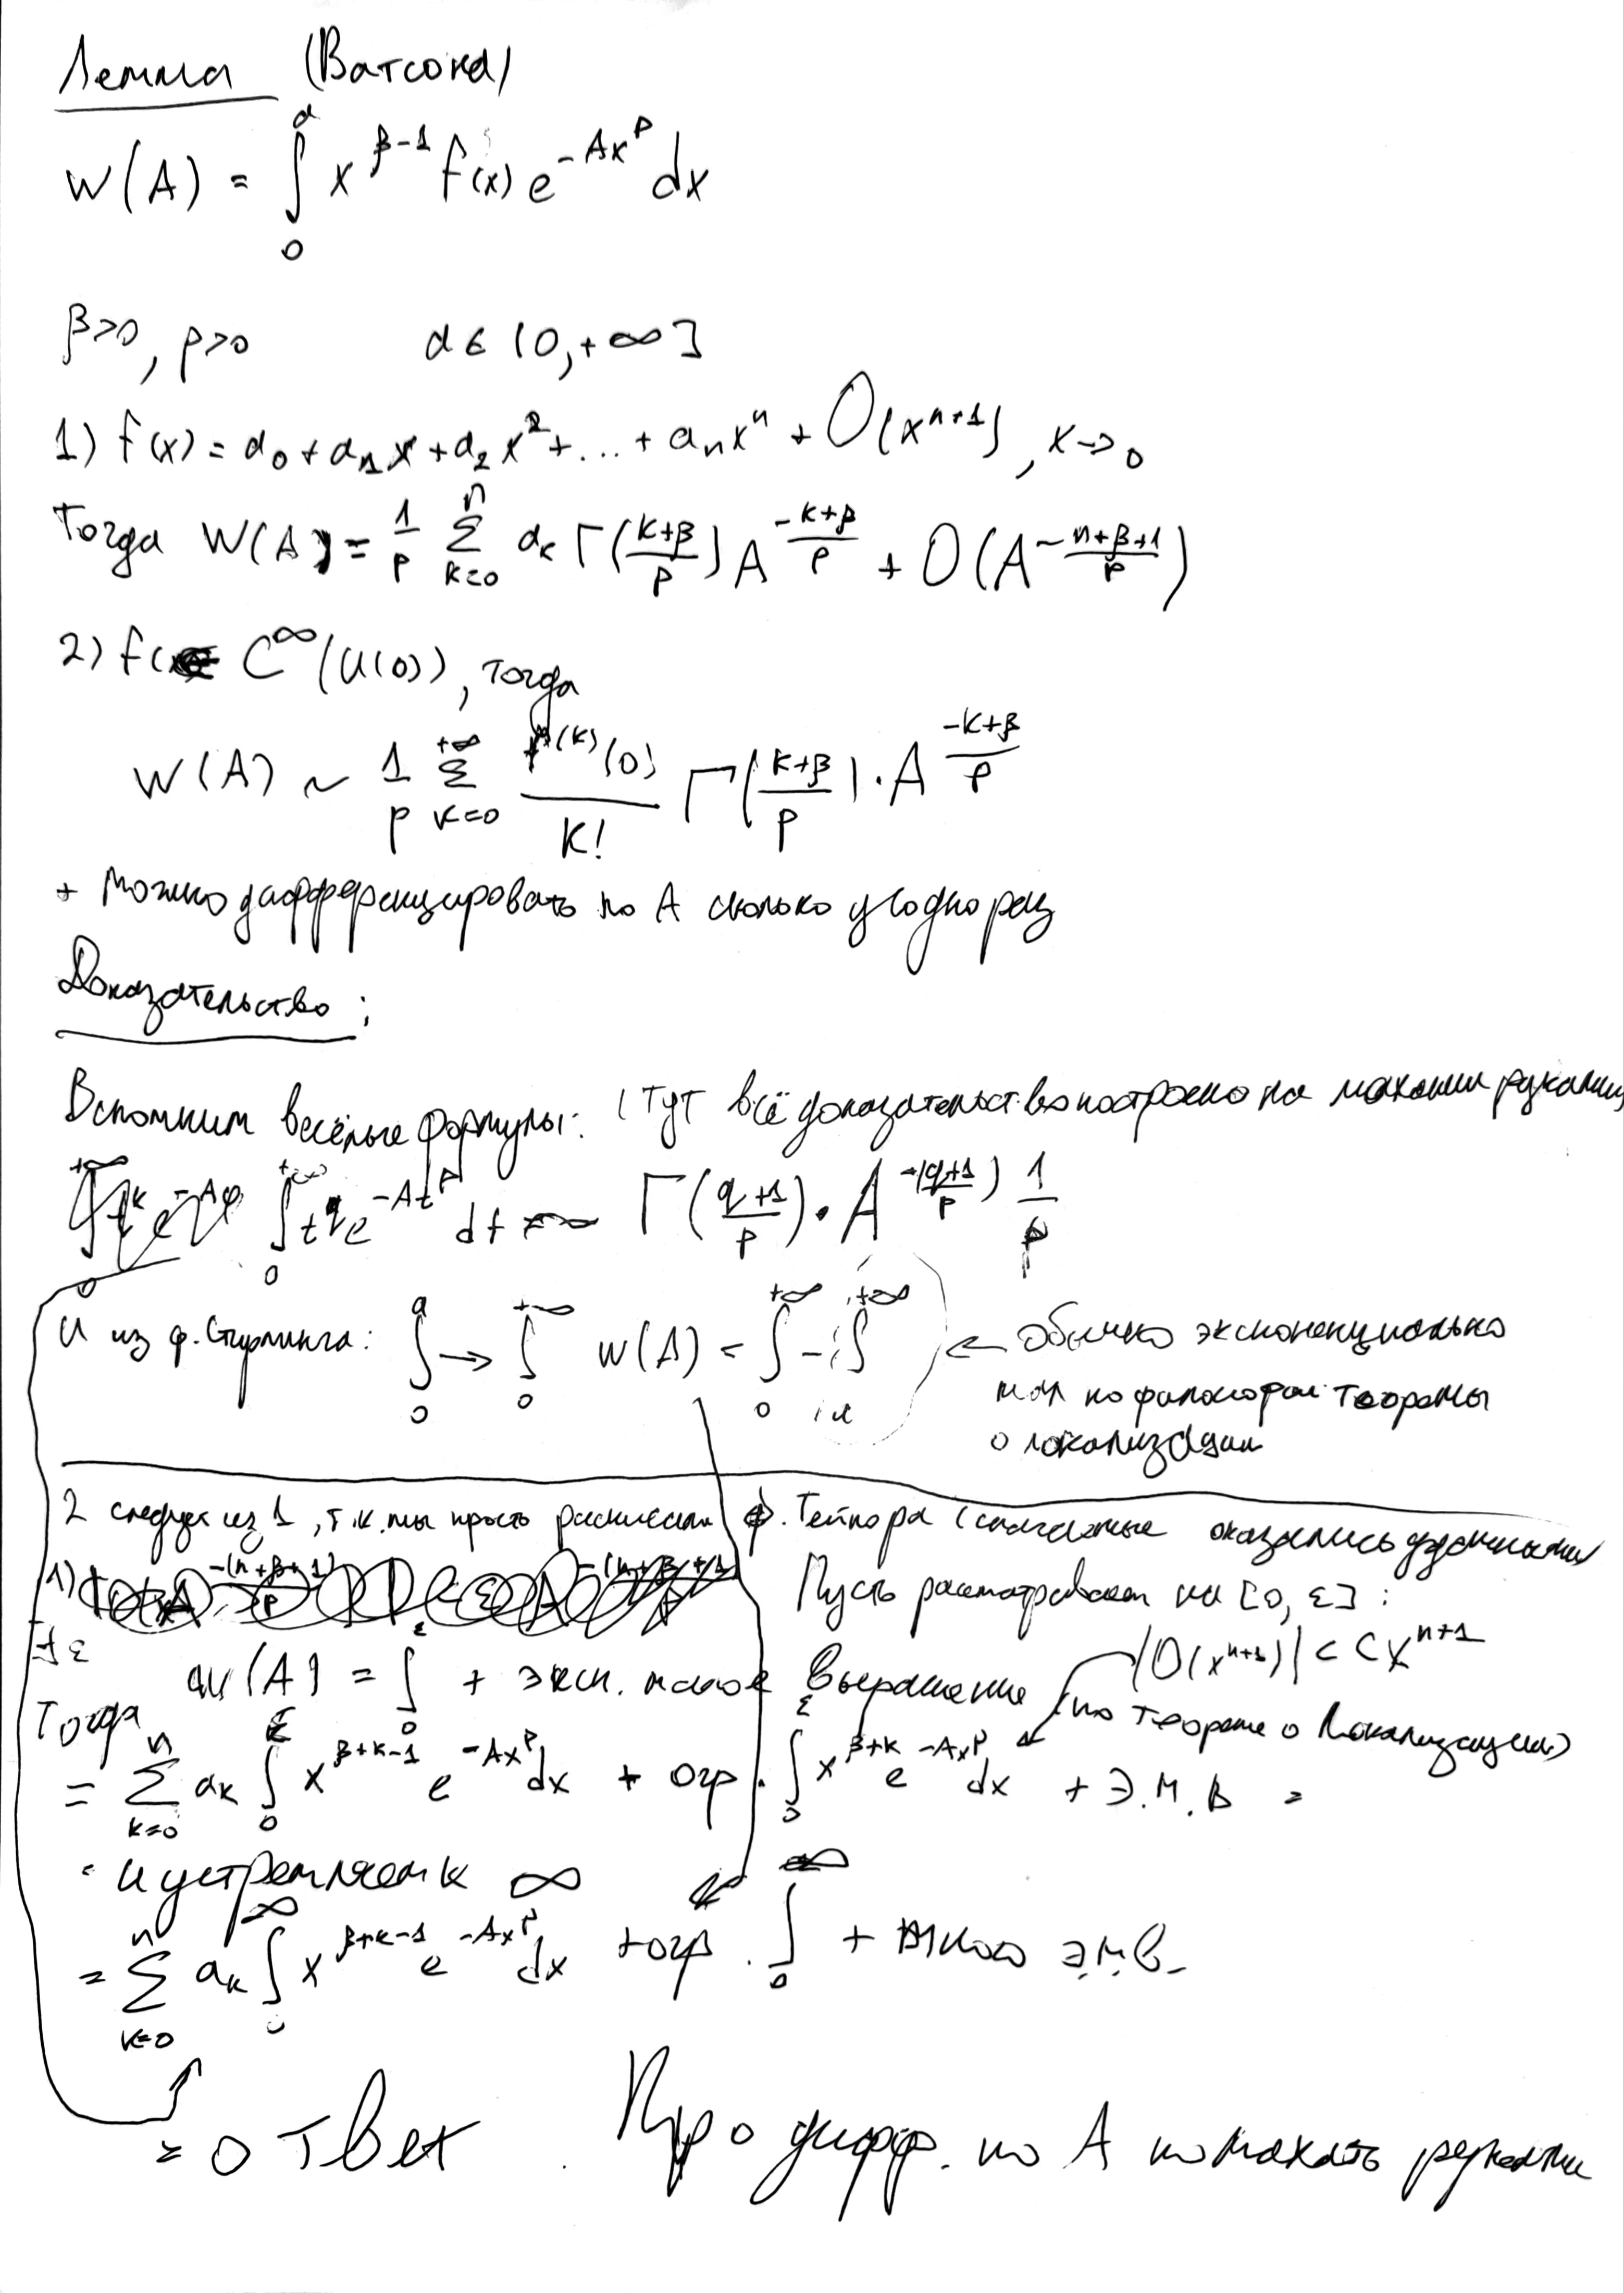 Лемма (Ватсона)
W(A) = ∫₀ᵃ x^{β-1} f(x) e^{-Ax^p} dx
β>0, p>0 a ∈ (0,+∞]
1) f(x) = a₀ + a₁x + a₂x² + ... + aₙxⁿ + O(x^{n+1}), x→0
Тогда W(A) = 1/p Σ_{k=0}^{n} aₖ Γ((k+β)/p) A^{-(k+β)/p} + O(A^{-(n+β+1)/p})
2) f ∈ C^∞(U(0)), тогда
W(A) ~ 1/p Σ_{k=0}^{+∞} f^{(k)}(0)/k! Γ((k+β)/p) · A^{-(k+β)/p}
+ Можно дифференцировать по A сколько угодно раз
Доказательство:
Вспомним весёлые формулы: (Тут всё доказательство построено на махании руками
∫₀^{+∞} t^q e^{-At^p} dt = Γ((q+1)/p) · A^{-(q+1)/p} 1/p
И из ф. Стирлинга: ∫₀ᵃ → ∫₀^{+∞} W(A) = ∫₀^{+∞} - ∫ₐ^{+∞} ← Обычно экспоненциально
мал по философии теоремы
о локализации
2 следует из 1, т.к. мы просто распишем ф. Тейлора (слагаемые оказались удачными
1)
∃ε Пусть рассматриваем на [0, ε]:
|O(x^{n+1})| < Cx^{n+1}
Тогда W(A) = ∫₀^ε + эксп. малое выражение (по теореме о локализации)
= Σ_{k=0}^{n} aₖ ∫₀^ε x^{β+k-1} e^{-Ax^p} dx + огр. ∫₀^ε x^{β+k} e^{-Ax^p} dx + Э.М.В =
= и устремляем к ∞
= Σ_{k=0}^{n} aₖ ∫₀^∞ x^{β+k-1} e^{-Ax^p} dx + огр. ∫₀^∞ + э.м.в.
= ответ. Про дифф. по A помахать руками